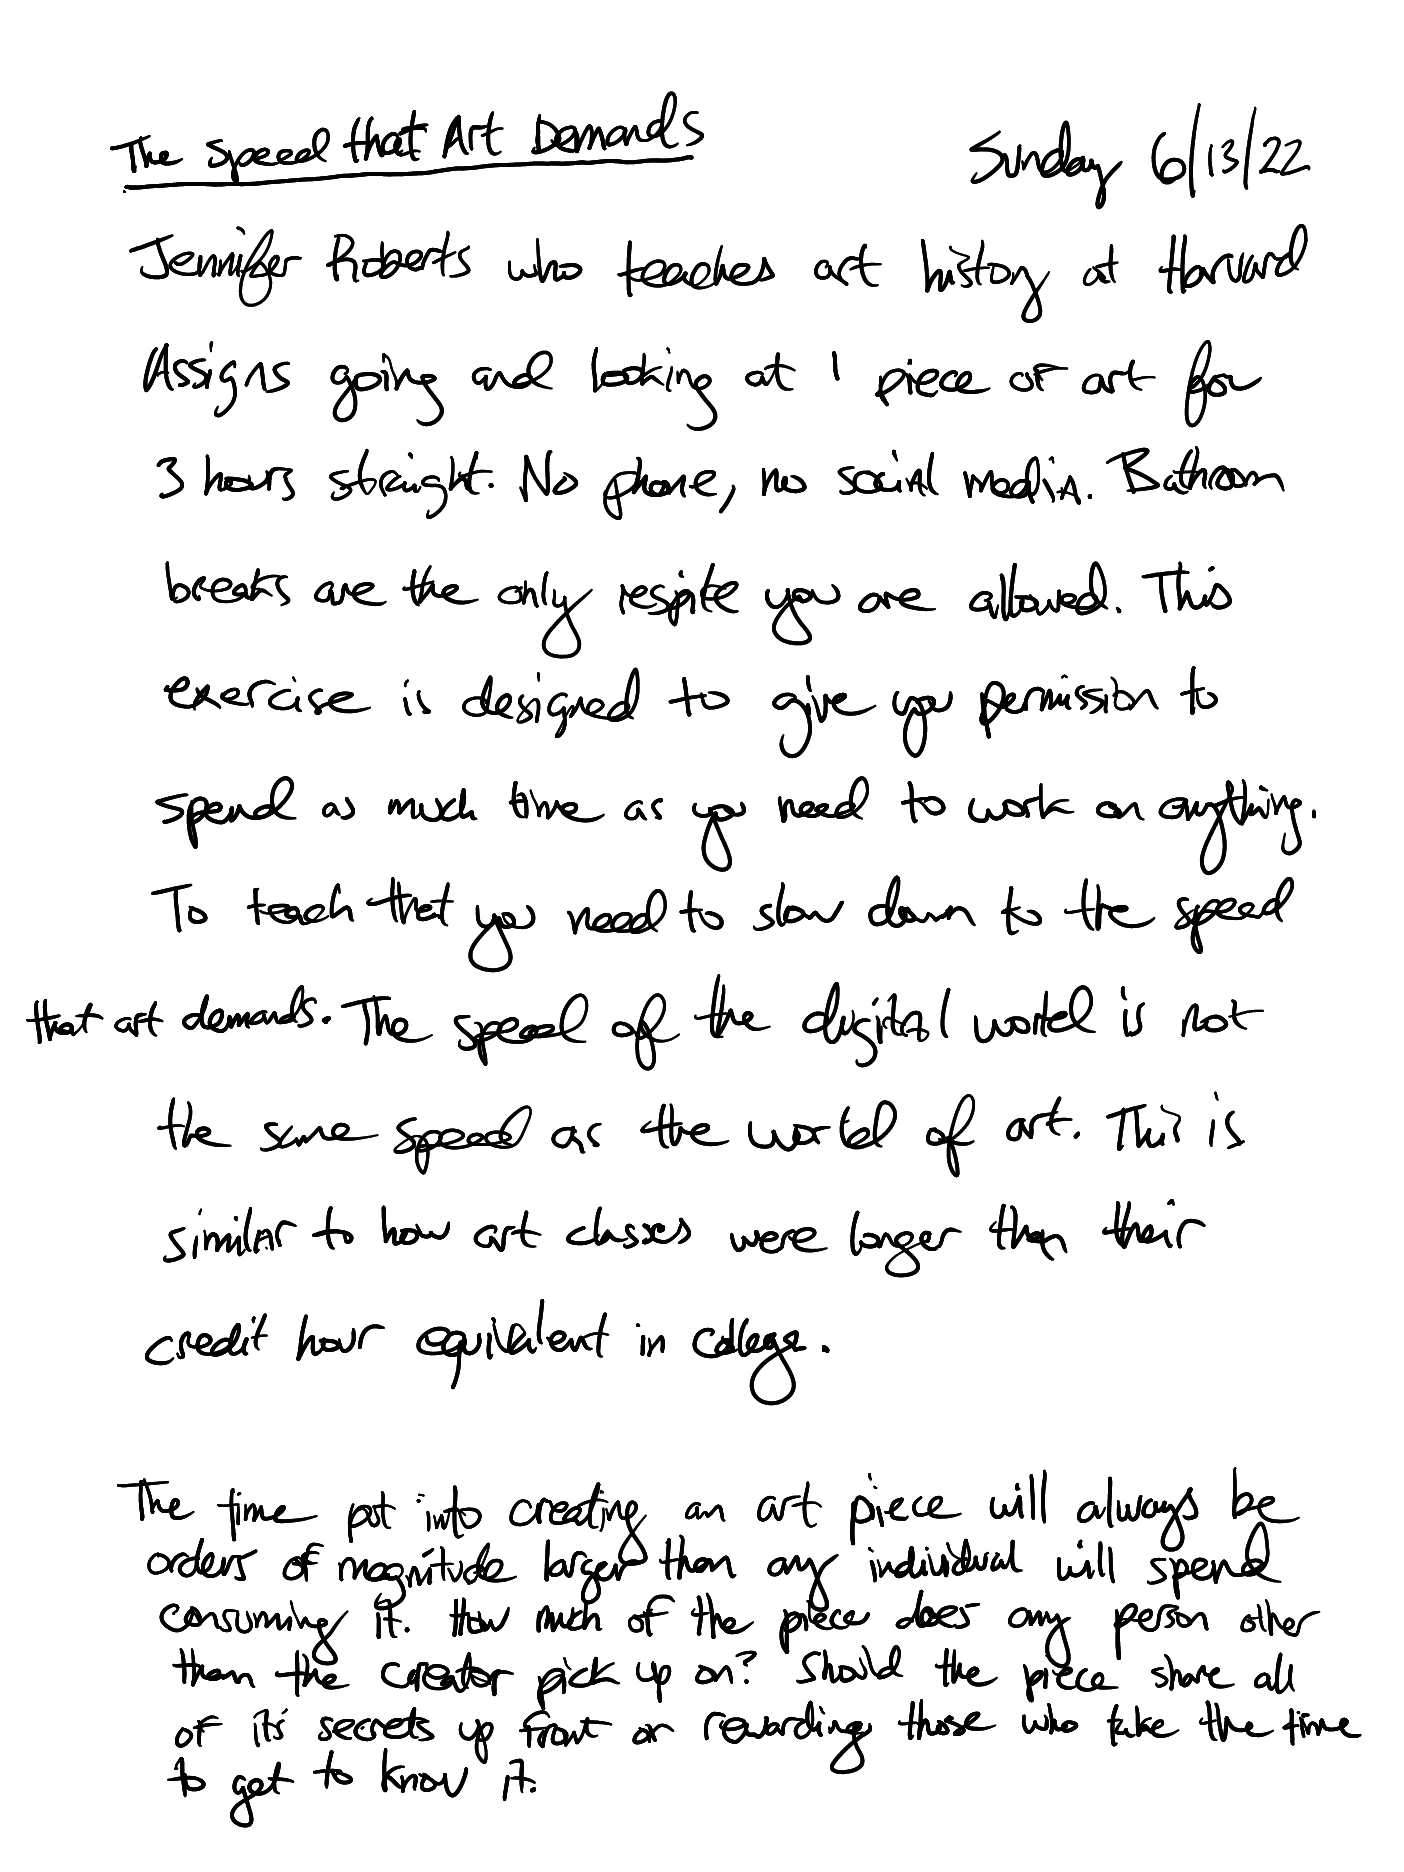 The Speed that Art Demands
Sunday 6/13/22
Jennifer Roberts who teaches art history at Harvard
Assigns going and looking at 1 piece of art for
3 hours straight. No phone, no social media. Bathroom
breaks are the only respite you are allowed. This
exercise is designed to give you permission to
spend as much time as you need to work on anything.
To teach that you need to slow down to the speed
that art demands. The speed of the digital world is not
the same speed as the world of art. This is
similar to how art classes were longer than their
credit hour equivalent in college.
The time put into creating an art piece will always be
orders of magnitude larger than any individual will spend
consuming it. How much of the piece does any person other
than the creator pick up on? Should the piece share all
of it's secrets up front or rewarding those who take the time
to get to know it.